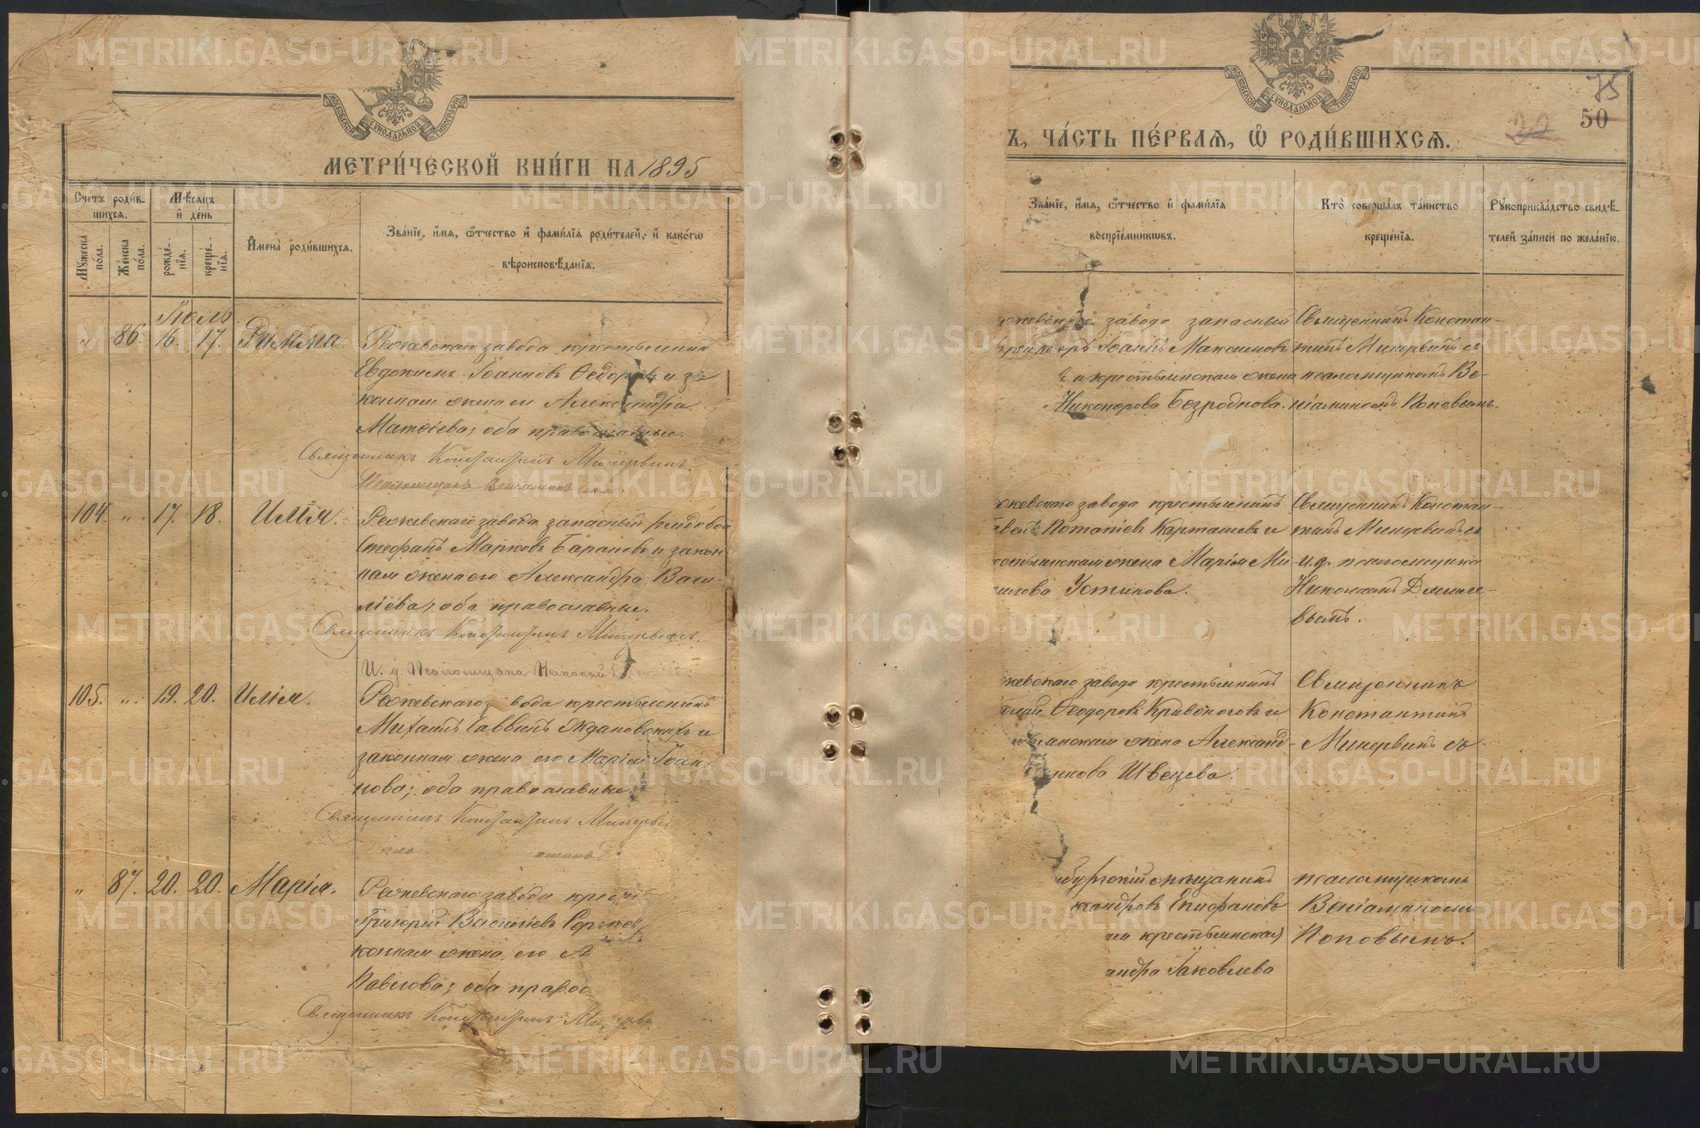 МЕТРИ́ЧЕСКОЙ КНИ́ГИ НА 1895
Сче́тъ роди́в-
шихся.
Мѣ́сяцъ
и҆ де́нь
Му́жеска
по́ла.
Же́нска
по́ла.
рожде-
нїя.
креще-
нїя.
И҆мена̀ роди́вшихся.
Зва́нїе, и҆́мя, ѻ҆́тчество и҆ фамилїя роди́телей, и҆ како́гѡ
вѣроисповѣ́данїя.
Іюль
" 86. 16. 17. Римма.
Режевскаго завода крестьянинъ
Евдокимъ Іоанновъ Ѳедоровъ и за-
конная жена его Александра
Матѳіева; оба православные.
Священникъ Константинъ Минервинъ.
Псаломщикъ
104. " 17. 18. Илія.
Режевскаго завода запасный рядовой
Стефанъ Марковъ Барановъ и закон-
ная жена его Александра Васи-
ліева; оба православные.
Священникъ Константинъ Минервинъ.
И. д. Псаломщика Николай
105. " 19. 20. Илія.
Режевскаго завода крестьянинъ
Михаилъ Саввинъ Ждановскихъ и
законная жена его Марія Іоан-
нова; оба православные.
Священникъ Константинъ Минерви
" 87. 20. 20. Марія.
Режевскаго завода крес
Григорій Василіевъ
конная жена его
Павлова; оба правос
Священникъ Константинъ
75
50
22
Ъ, ЧА́СТЬ ПЕ́РВАЯ, Ѡ҆ РОДИ́ВШИХСЯ.
Зва́нїе, и҆́мя, ѻ҆́тчество и҆ фами́лїя
воспрїе́мникѡвъ.
Кто̀ соверша́лъ та́инство
креще́нїя.
Рꙋкоприкла́дство свидѣ́-
телей за́писи по жела́нїю.
жевскаго завода запасный
Іоаннъ Максимовъ
и крестьянская жена
Никонорова Безроднова.
Священникъ Констан-
тинъ Минервинъ съ
псаломщикомъ Ве-
ніаминомъ Поповымъ.
жевскаго завода крестьянинъ
Потапіевъ Карташевъ и
естьянская жена Марія Ми
Устинова.
Священникъ Констан-
тинъ Минервинъ съ
и.д. псаломщика
Николаемъ
вымъ.
жевскаго завода крестьянинъ
олай Ѳеодоровъ Кривоноговъ и
ьянская жена Александ-
Швецева.
Священникъ
Константинъ
Минервинъ съ
бургскій мѣщанинъ
ксандровъ Епифановъ
крестьянская
андра Іаковлева
псаломщикомъ
Веніаминомъ
Поповымъ.
METRIKI.GASO-URAL.RU